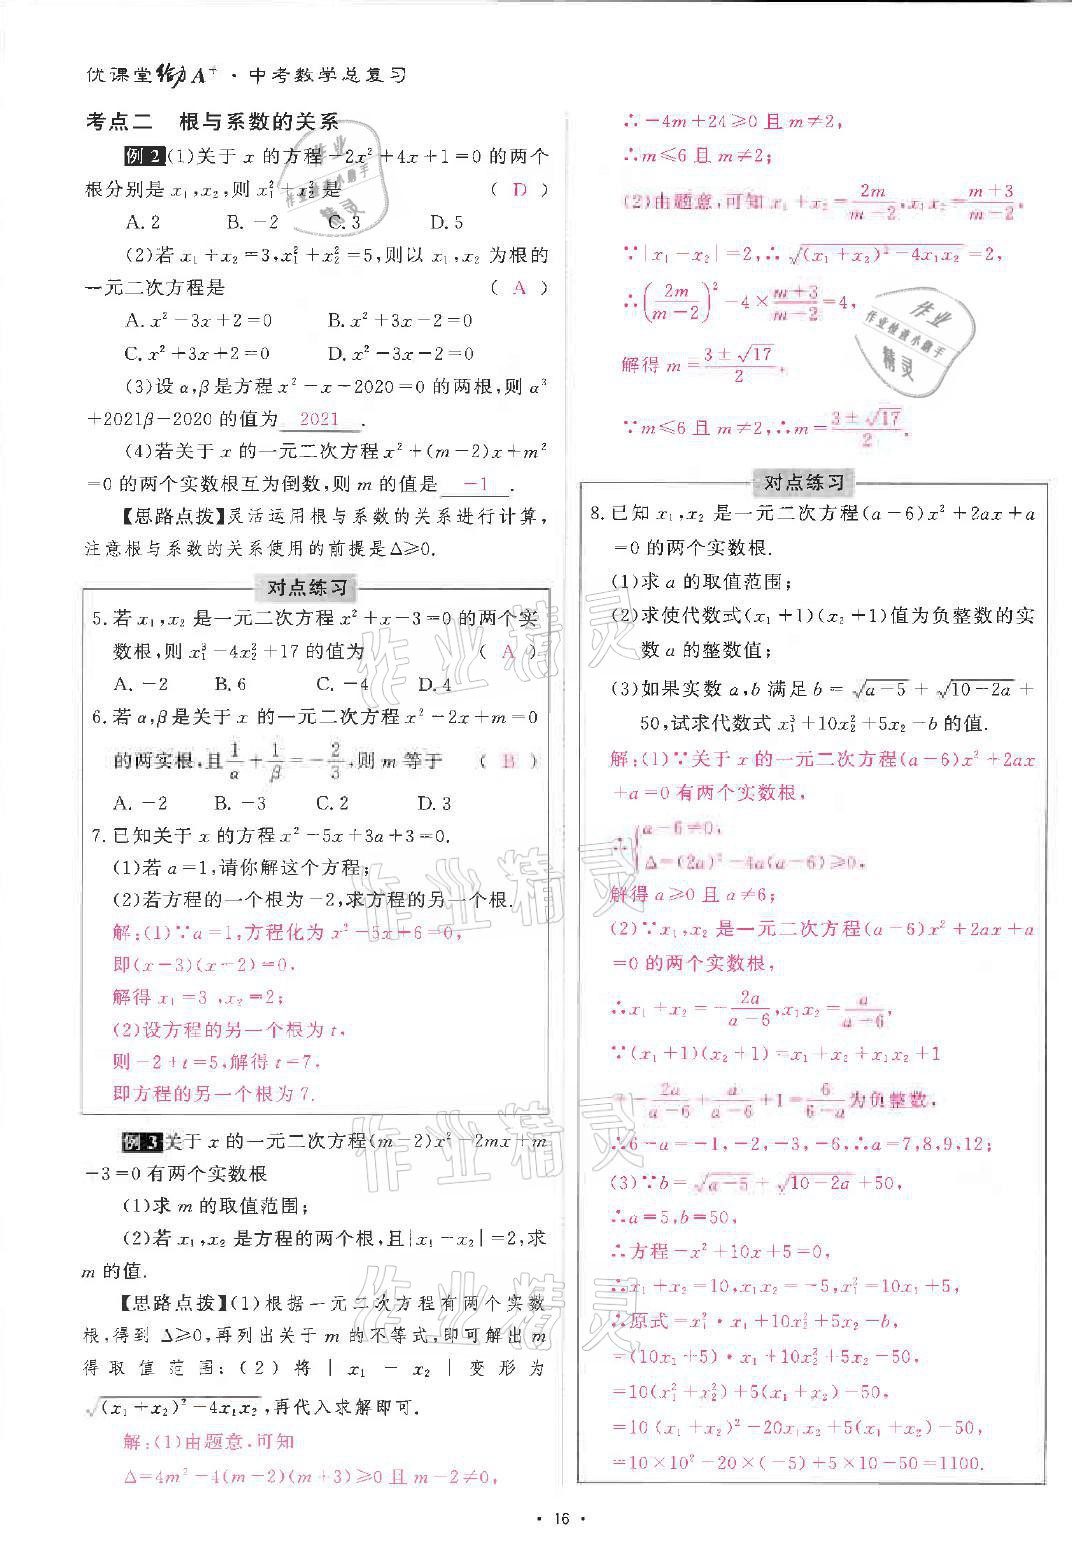 优课堂给力A⁺·中考数学总复习
考点二 根与系数的关系
例2 (1)关于 x 的方程−2x²+4x+1=0 的两个
根分别是 x₁,x₂,则 x₁²+x₂² 是 ( D )
A. 2 B. −2 C. 3 D. 5
(2)若 x₁+x₂=3,x₁²+x₂²=5,则以 x₁,x₂ 为根的
一元二次方程是 ( A )
A. x²−3x+2=0 B. x²+3x−2=0
C. x²+3x+2=0 D. x²−3x−2=0
(3)设 α,β是方程 x²−x−2020=0 的两根,则 α³
+2021β−2020 的值为 2021 .
(4)若关于 x 的一元二次方程 x²+(m−2)x+m²
=0 的两个实数根互为倒数,则 m 的值是 −1 .
【思路点拨】灵活运用根与系数的关系进行计算,
注意根与系数的关系使用的前提是Δ≥0.
对点练习
5. 若 x₁,x₂ 是一元二次方程 x²+x−3=0 的两个实
数根,则 x₁³−4x₂²+17 的值为 ( A )
A. −2 B. 6 C. −4 D. 4
6. 若 α,β是关于 x 的一元二次方程 x²−2x+m=0
的两实根,且 1/α+1/β=−2/3,则 m 等于 ( B )
A. −2 B. −3 C. 2 D. 3
7. 已知关于 x 的方程 x²−5x+3a+3=0.
(1)若 a=1,请你解这个方程;
(2)若方程的一个根为−2,求方程的另一个根.
解:(1)∵a=1,方程化为 x²−5x+6=0,
即(x−3)(x−2)=0,
解得 x₁=3,x₂=2;
(2)设方程的另一个根为 t,
则−2+t=5,解得 t=7,
即方程的另一个根为 7.
例3 关于 x 的一元二次方程(m−2)x²−2mx+m
−3=0 有两个实数根
(1)求 m 的取值范围;
(2)若 x₁,x₂ 是方程的两个根,且|x₁−x₂|=2,求
m 的值.
【思路点拨】(1)根据一元二次方程有两个实数
根,得到 Δ≥0,再列出关于 m 的不等式,即可解出 m
得取值范围;(2)将|x₁−x₂|变形为
√((x₁+x₂)²−4x₁x₂),再代入求解即可.
解:(1)由题意,可知
Δ=4m²−4(m−2)(m+3)≥0 且 m−2≠0,
∴−4m+24≥0 且 m≠2,
∴m≤6 且 m≠2;
(2)由题意,可知 x₁+x₂=2m/(m−2),x₁x₂=(m+3)/(m−2),
∵|x₁−x₂|=2,∴√((x₁+x₂)²−4x₁x₂)=2,
∴(2m/(m−2))²−4×(m+3)/(m−2)=4,
解得 m=(3±√17)/2.
∵m≤6 且 m≠2,∴m=(3±√17)/2.
对点练习
8. 已知 x₁,x₂ 是一元二次方程(a−6)x²+2ax+a
=0 的两个实数根.
(1)求 a 的取值范围;
(2)求使代数式(x₁+1)(x₂+1)值为负整数的实
数 a 的整数值;
(3)如果实数 a,b 满足 b=√(a−5)+√(10−2a)+
50,试求代数式 x₁³+10x₂²+5x₂−b 的值.
解:(1)∵关于 x 的一元二次方程(a−6)x²+2ax
+a=0 有两个实数根,
∴{a−6≠0,
Δ=(2a)²−4a(a−6)≥0,
解得 a≥0 且 a≠6;
(2)∵x₁,x₂ 是一元二次方程(a−6)x²+2ax+a
=0 的两个实数根,
∴x₁+x₂=−2a/(a−6),x₁x₂=a/(a−6),
∵(x₁+1)(x₂+1)=x₁+x₂+x₁x₂+1
=−2a/(a−6)+a/(a−6)+1=6/(6−a)为负整数,
∴6−a=−1,−2,−3,−6,∴a=7,8,9,12;
(3)∵b=√(a−5)+√(10−2a)+50,
∴a=5,b=50,
∴方程−x²+10x+5=0,
∴x₁+x₂=10,x₁x₂=−5,x₁²=10x₁+5,
∴原式=x₁²·x₁+10x₂²+5x₂−b,
=(10x₁+5)·x₁+10x₂²+5x₂−50
=10(x₁²+x₂²)+5(x₁+x₂)−50
=10(x₁+x₂)²−20x₁x₂+5(x₁+x₂)−50
=10×10²−20×(−5)+5×10−50=1100.
·16·
作业精灵
作业精灵
作业精灵
作业精灵
作业
作业快速小助手
精灵
作业
作业快速小助手
精灵